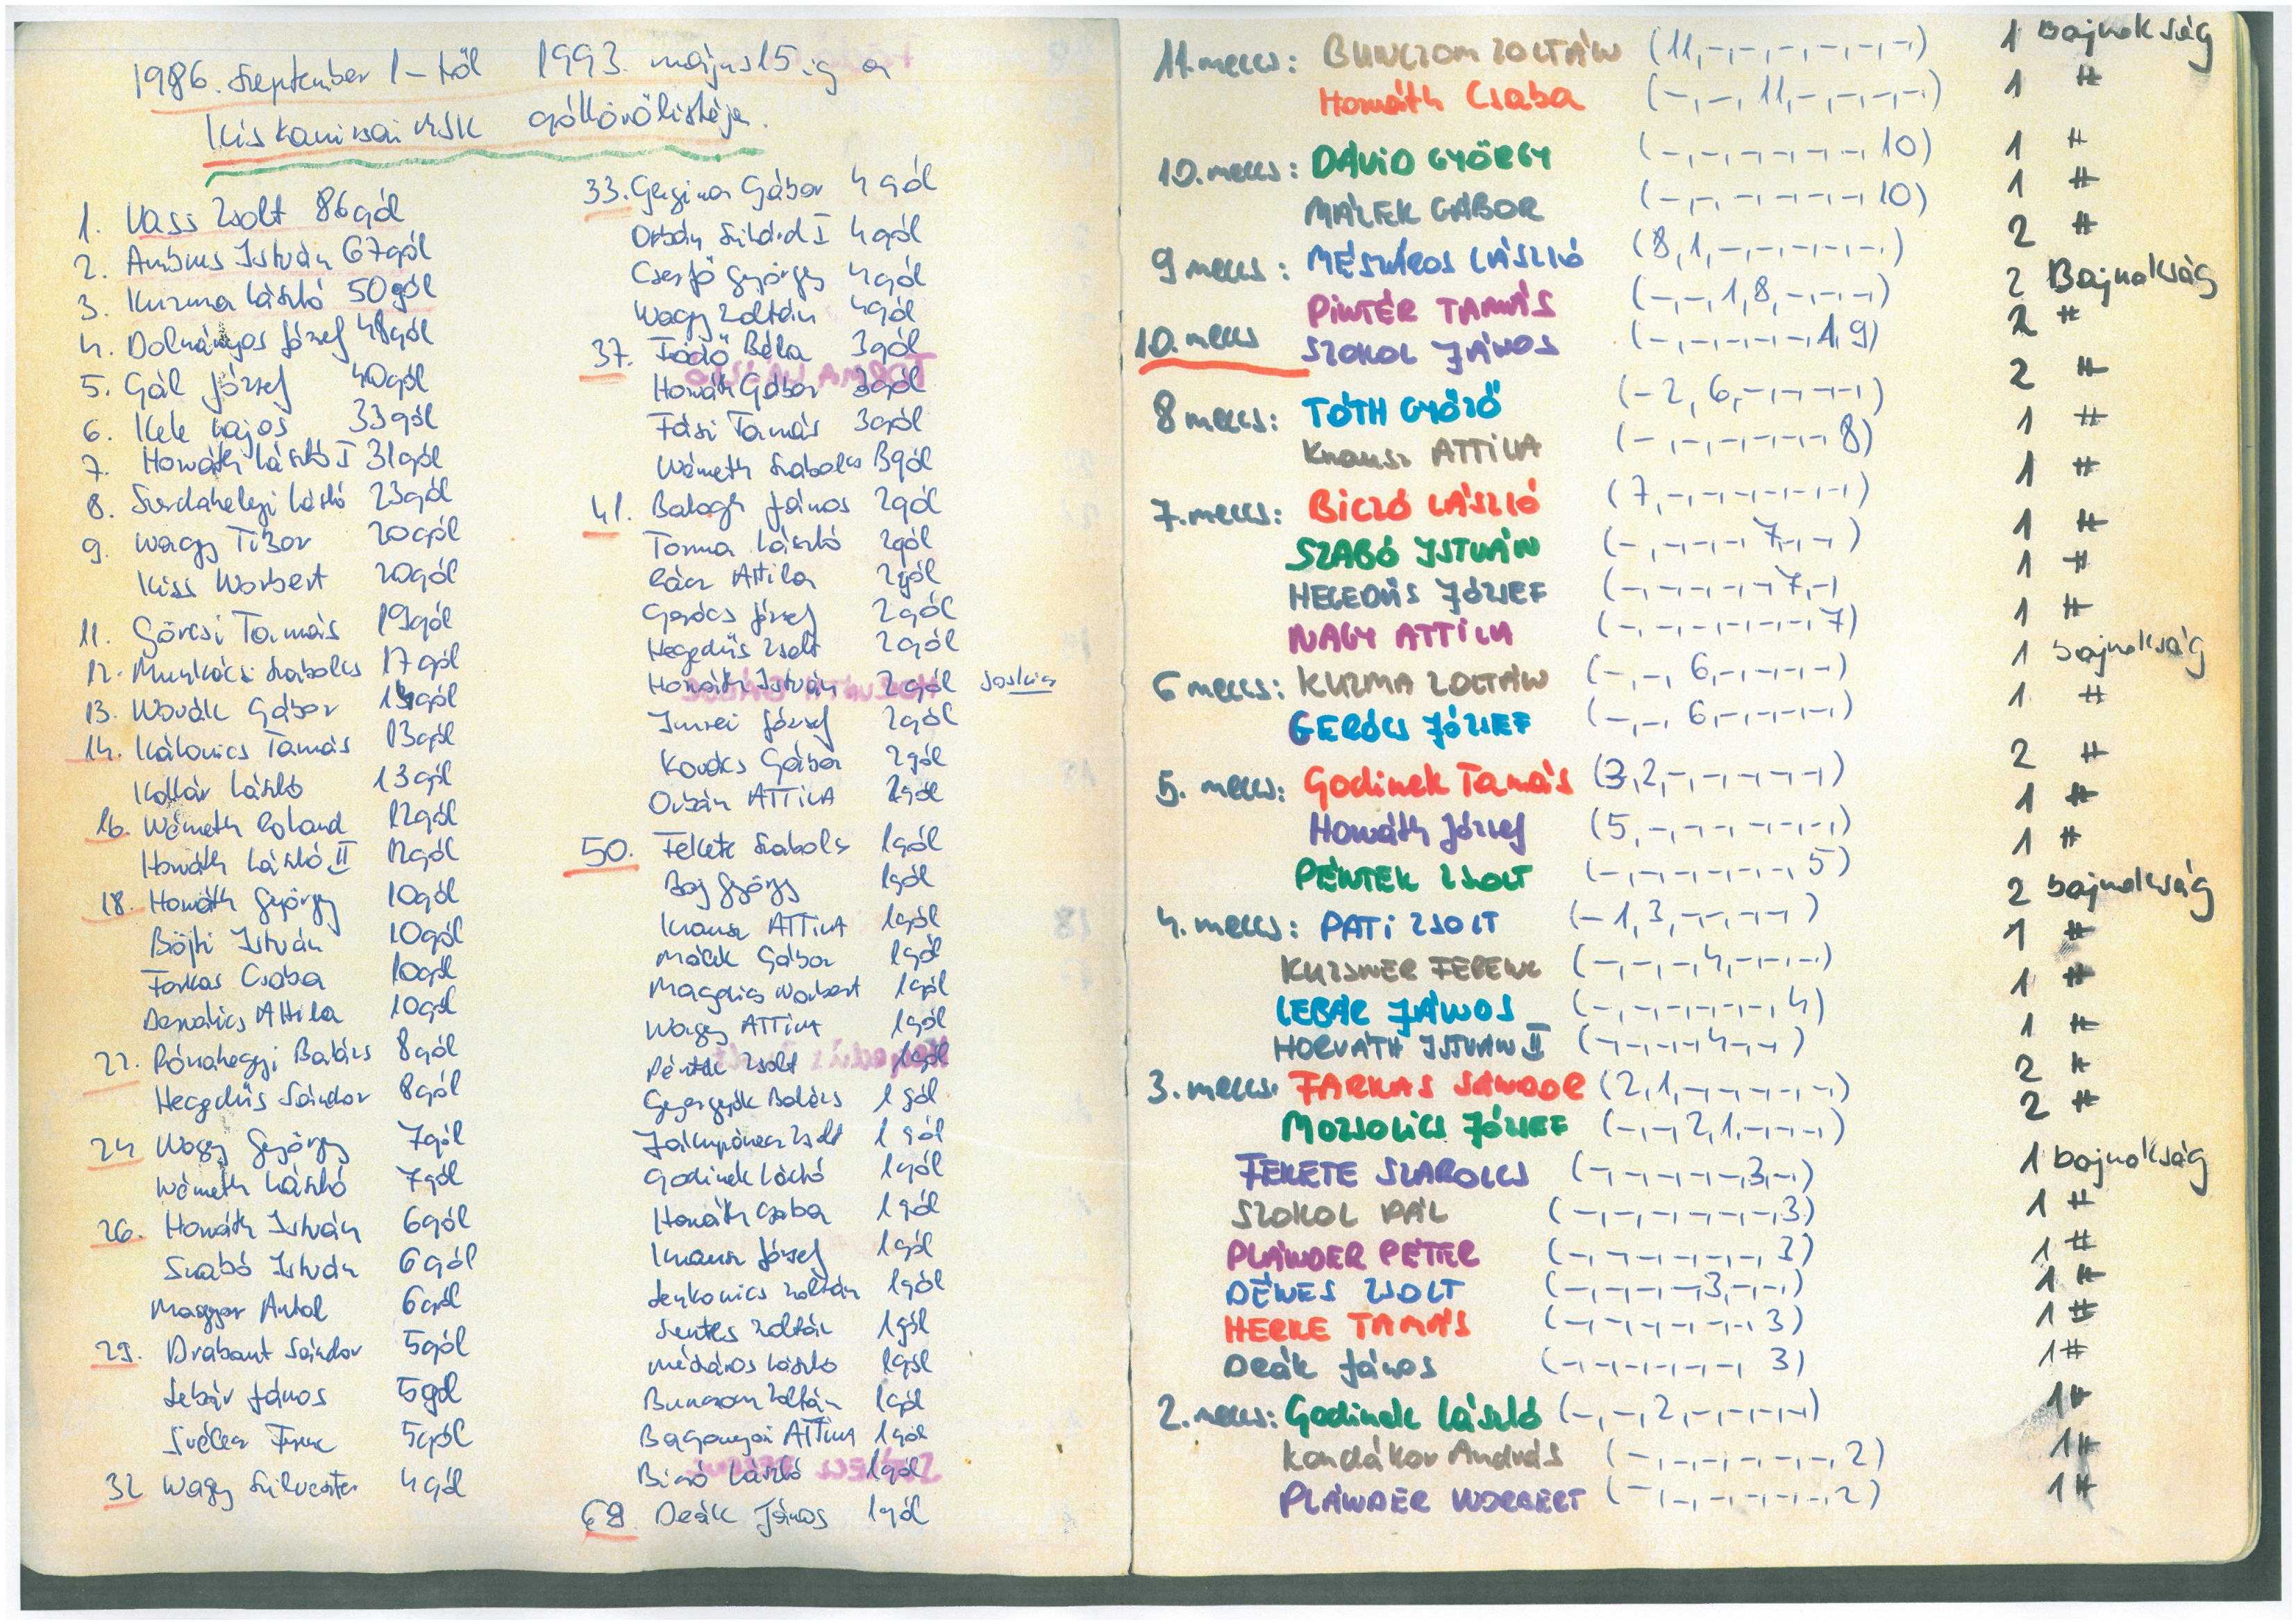 1986. szeptember 1-től 1993. május 15.ig a
Kiskanizsai MSK góllövőlistája.
1. Vass Zsolt 86gól
2. Ambrus István 67gól
3. Kuzma László 50gól
4. Dolmányos József 48gól
5. Gál József 40gól
6. Kele Lajos 33gól
7. Horváth László I 31gól
8. Szerdahelyi László 23gól
9. Nagy Tibor 20gól
Kiss Norbert 20gól
11. Görcsi Tamás 19gól
12. Munkácsi Szabolcs 17gól
13. Novák Gábor gól
14. Kálovics Tamás 13gól
Kollár László 13gól
16. Németh Roland 12gól
Horváth László II 12gól
18. Horváth György 10gól
Böjti István 10gól
Farkas Csaba 10gól
Dervalics Attila 10gól
22. Rónahegyi Balázs 8gól
Hegedűs Sándor 8gól
24 Nagy György 7gól
Németh László 7gól
26. Horváth István 6gól
Szabó István 6gól
Magyar Antal 6gól
29. Drabant Sándor 5gól
Lebár János 5gól
Ferenc 5gól
32 Nagy Szilveszter 4gól
33. Gábor 4 gól
Orbán Szilárd I 4gól
Cserfő György 4gól
Nagy Zoltán 4gól
37. Fodő Béla 3gól
Horváth Gábor 3gól
Fási Tamás 3gól
Németh Szabolcs 3gól
41. Balogh János 2gól
Torma László 2gól
Rácz Attila 2gól
Gerócs József 2gól
Hegedűs Zsolt 2gól
Horváth István 2gól
Imrei József 2gól
Kovács Gábor 2gól
Orbán ATTILA 2gól
50. Fekete Szabolcs 1gól
Boj György 1gól
Knausz ATTILA 1gól
Málek Gábor 1gól
Magdics Norbert 1gól
Nagy ATTILA 1gól
Péntek Zsolt 1gól
Gyergyák Balázs 1gól
Zsolt 1gól
Godinek László 1gól
Horváth Csaba 1gól
Knausz József 1gól
Lenkovics Zoltán 1gól
Szentes Zoltán 1gól
Mészáros László 1gól
Bunczom Zoltán 1gól
Bagonyai ATTILA 1gól
Biczó László 1gól
69. Deák János 1gól
11.meccs: BUNCZOM ZOLTÁN (11,-,-,-,-,-,-,-) 1 Bajnokság
Horváth Csaba (-,-,-,11,-,-,-,-) 1 "
10.meccs: DÁVID GYÖRGY (-,-,-,-,-,-,-,10) 1 "
MÁLEK GÁBOR (-,-,-,-,-,-,-,10) 1 "
9 meccs: MÉSZÁROS LÁSZLÓ (8,1,-,-,-,-,-,-) 2 "
PINTÉR TAMÁS (-,-,1,8,-,-,-,-) 2 Bajnokság
10.meccs SZOKOL JÁNOS (-,-,-,-,-,-,1,9) 2 "
8 meccs: TÓTH GYŐZŐ (-2,6,-,-,-,-,-) 2 "
Knausz ATTILA (-,-,-,-,-,-,-8) 1 "
7.meccs: BICZÓ LÁSZLÓ (7,-,-,-,-,-,-,-) 1 "
SZABÓ ISTVÁN (-,-,-,-,-,7,-,-) 1 "
HEGEDŰS JÓZSEF (-,-,-,-,-,-,7,-) 1 "
NAGY ATTILA (-,-,-,-,-,-,-,7) 1 "
6 meccs: KUZMA ZOLTÁN (-,-,-,6,-,-,-,-) 1 bajnokság
GERÓCS JÓZSEF (-,-,-,6,-,-,-,-) 1 "
5. meccs: Godinek Tamás (3,2,-,-,-,-,-,-) 2 "
Horváth József (5,-,-,-,-,-,-,-) 1 "
PÉNTEK ZSOLT (-,-,-,-,-,-,-,5) 1 "
4. meccs: PATI ZSOLT (-1,3,-,-,-,-,-) 2 bajnokság
KUZSNER FERENC (-,-,-,-,4,-,-,-) 1 "
LEBÁR JÁNOS (-,-,-,-,-,-,-,4) 1 "
HORVÁTH ISTVÁN II (-,-,-,-,-4,-,-) 1 "
3. meccs: FARKAS SÁNDOR (2,1,-,-,-,-,-,-) 2 "
MOZSOLICS JÓZSEF (-,-,-,2,1,-,-,-) 2 "
FEKETE SZABOLCS (-,-,-,-,-,-,3,-) 1 bajnokság
SZOKOL PÁL (-,-,-,-,-,-,-,3) 1 "
PLÁNDER PÉTER (-,-,-,-,-,-,-,3) 1 "
DÉNES ZSOLT (-,-,-,-,-,3,-,-) 1 "
HERKE TAMÁS (-,-,-,-,-,-,-,3) 1 "
DEÁK János (-,-,-,-,-,-,-,3) 1 "
2. meccs: Godinek László (-,-,-,2,-,-,-,-) 1 "
Kondákor András (-,-,-,-,-,-,-,2) 1 "
PLÁNDER NORBERT (-,-,-,-,-,-,-,2) 1 "